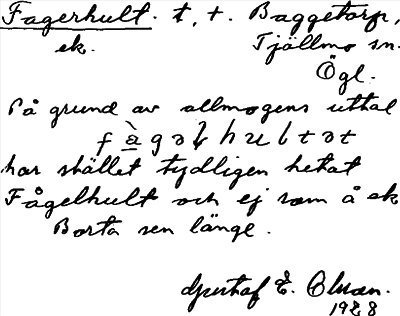 Fagerhult. t, +. Baggetorp,
ek. Tjällmo sn.
Ögl.
På grund av allmogens uttal
har stället tydligen hetat
Fågelhult och ej som å ek
Borta sen länge.
Gustaf E. Olsson.
1928